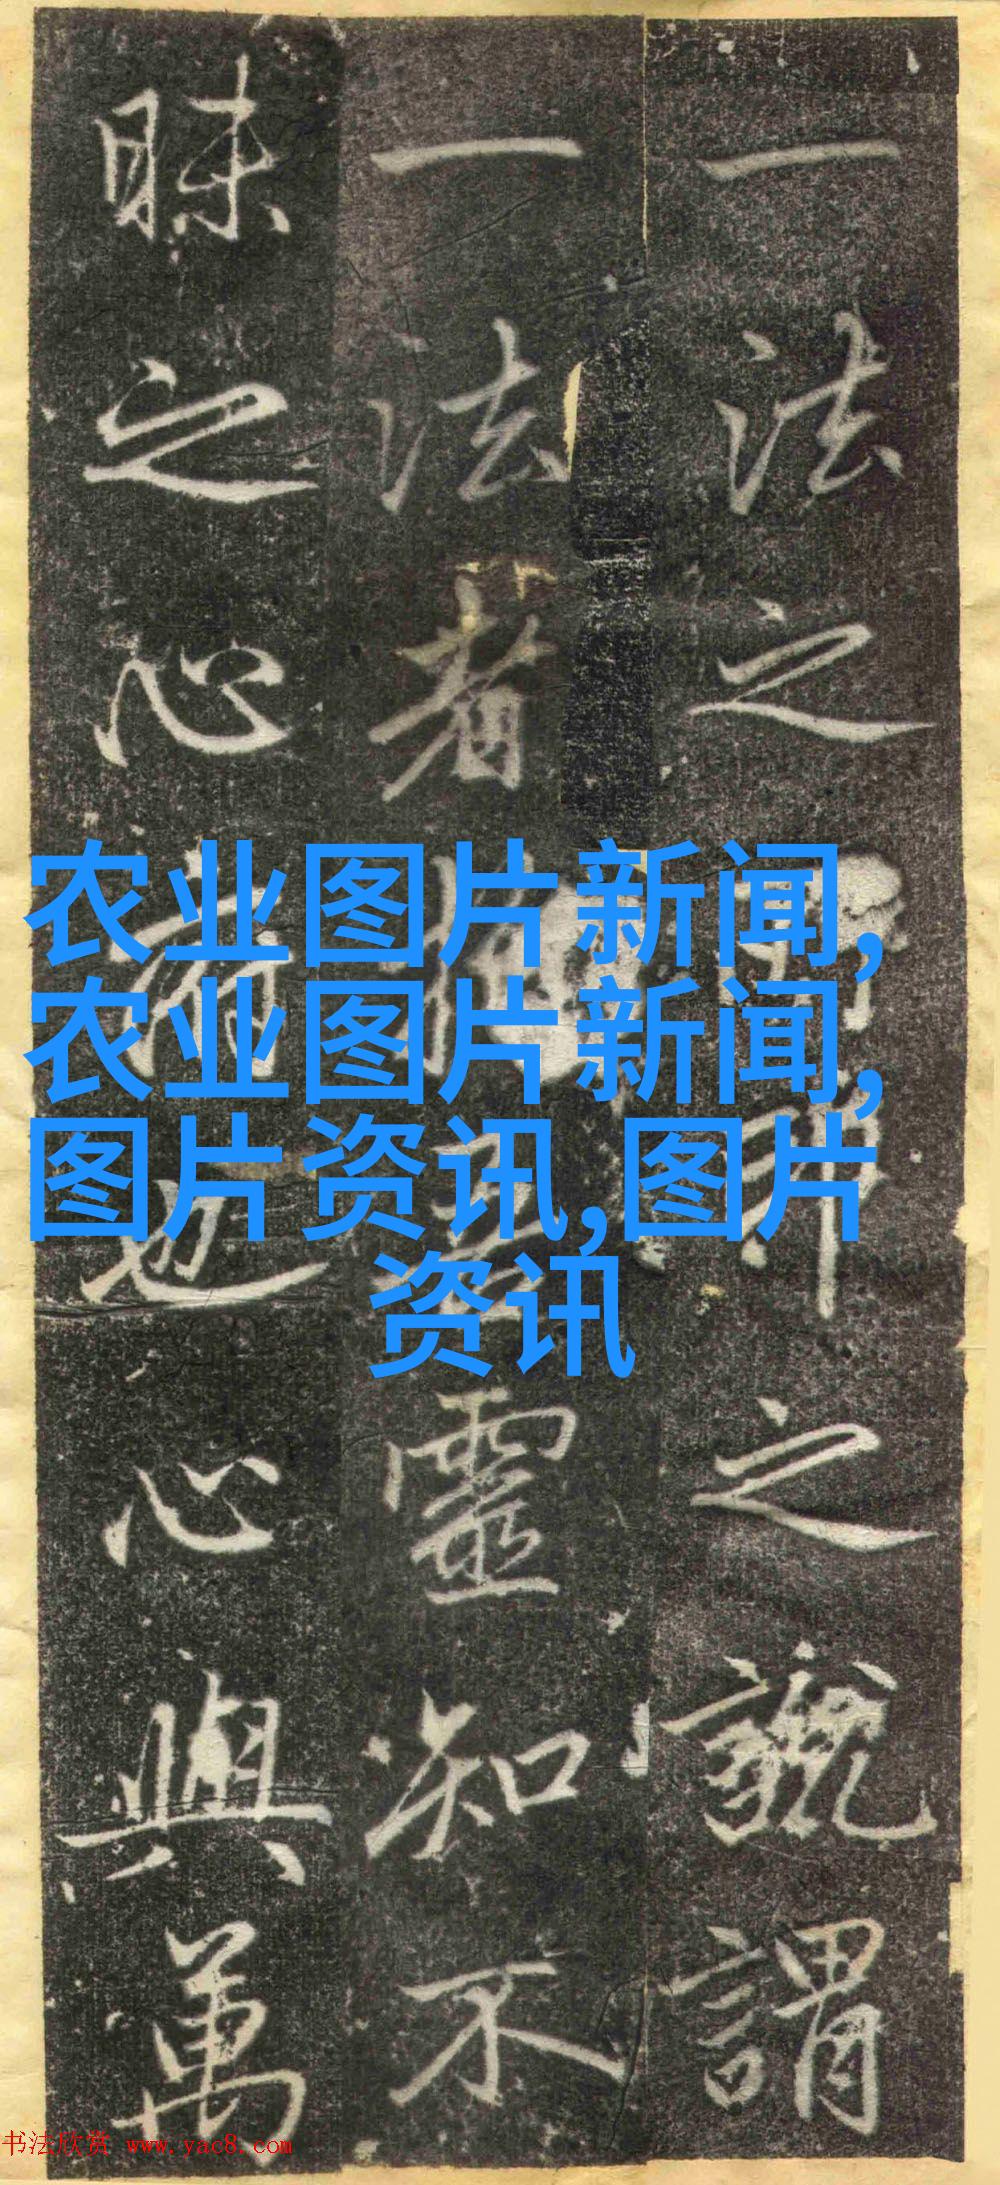 一法之之謂
一法者靈知不
昧之心也心與萬
农业图片新闻,
农业图片新闻,
图片资讯,图片
资讯
书法欣赏 www.yac8.com